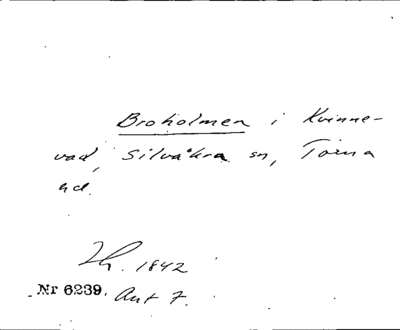 Broholmen i Kvinne-
vad, Silvåkra sn, Torna
hd.
Lh. 1842
Nr 6239. Ant 7.